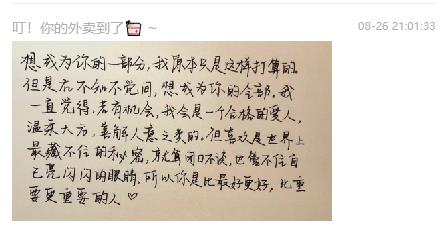 叮！你的外卖到了~
08-26 21:01:33
想成为你的一部分，我原本只是这样打算的
但是在不知不觉间，想成为你的全部，我
一直觉得，若有机会，我会是一个合格的爱人，
温柔大方，善解人意之类的，但喜欢是世界上
最藏不住的秘密，就算闭口不谈，也管不住自
己亮闪闪的眼睛，所以你是比最好更好，比重
要更重要的人♡